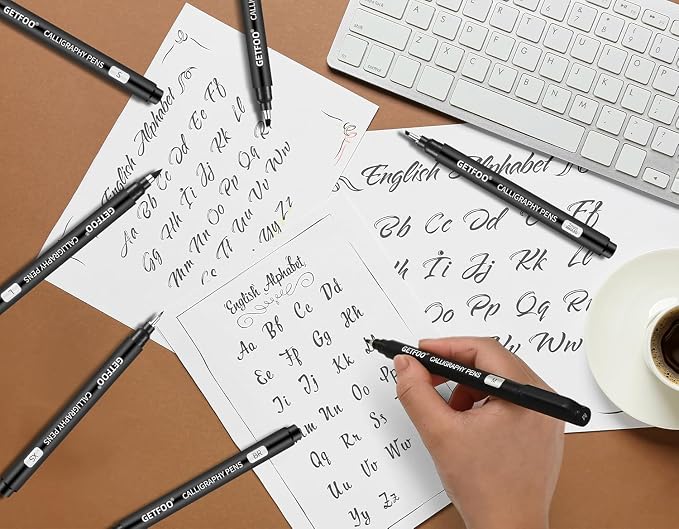 GETFOO® CALLIGRAPHY PENS S
GETFOO® CALLIGRAPHY PENS
GETFOO® CALLIGRAPHY PENS
GETFOO® CALLIGRAPHY PENS
GETFOO® CALLIGRAPHY PENS
GETFOO® CALLIGRAPHY PENS BR
GETFOO® CALLIGRAPHY PENS M
English Alphabet
Aa Bb Cc Dd Ee Ff
Gg Hh Ii Jj Kk Ll
Mm Nn Oo Pp Qq R
Tt Uu Vv Ww
Yy Zz
English Alphabet
Bb Cc Dd Ee Ff
Ii Jj Kk Ll
Oo Pp Qq Rr
Ww
English Alphabet
Aa Bb Cc Dd
Ee Ff Gg Hh
Ii Jj Kk
Mm Nn Oo Pp
Qq Rr Ss
Uu Vv Ww
Yy Zz
option
command